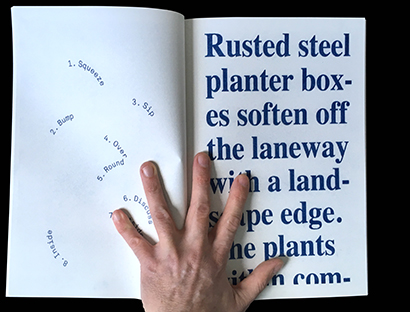 1. Squeeze
2. Bump
3. Sip
4. Over
5. Round
6. Discuss
7.
8. Inside
Rusted steel
planter box-
es soften off
the laneway
with a land-
scape edge.
The plants
within com-